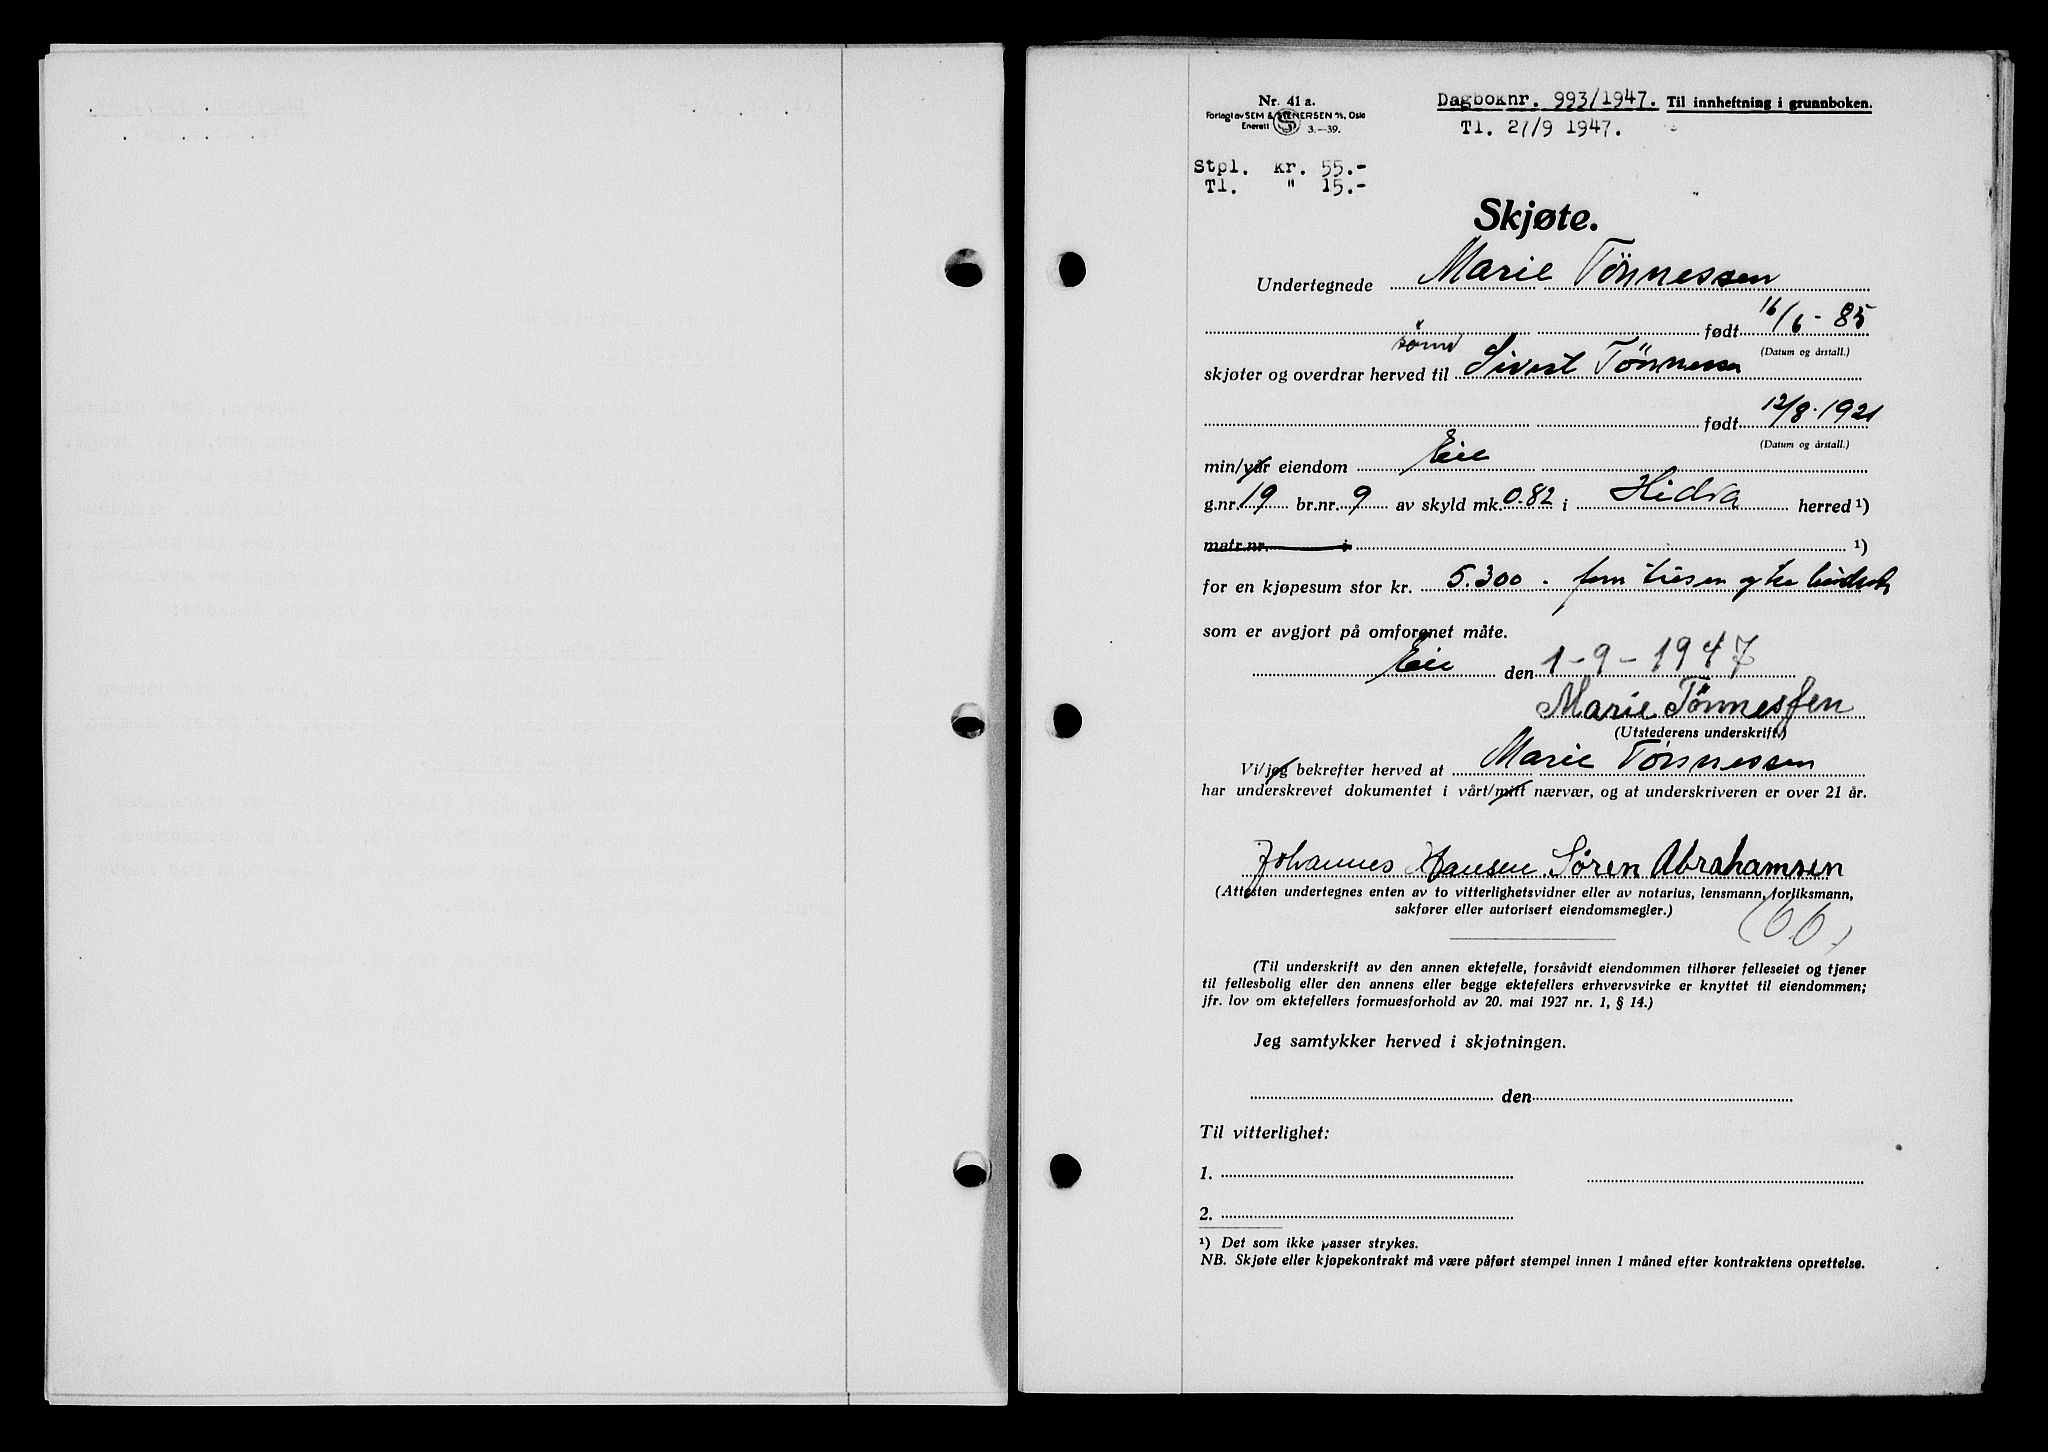 Nr. 41 a.
Forlagt av SEM & STENERSEN A/S, Oslo
Enerett S 3.–39.
Dagboknr. 993/1947. Til innheftning i grunnboken.
Tl. 27/9 1947.
Stpl. kr. 55.-
Tl. " 15.-
Skjøte.
Undertegnede Marie Tönnessen
født 16/6 - 85
(Datum og årstall.)
skjøter og overdrar herved til Sivert Tönnessen
født 12/8. 1921
(Datum og årstall.)
min/vår eiendom Eie
g.nr. 19 br.nr. 9 av skyld mk. 0.82 i Hidra herred ¹)
matr.nr. i ¹)
for en kjøpesum stor kr. 5.300 . fem tusen og tre hundrede
som er avgjort på omforenet måte.
Eie den 1-9-1947
Marie Tönnessen
(Utstederens underskrift.)
Vi/jeg bekrefter herved at Marie Tönnessen
har underskrevet dokumentet i vårt/mitt nærvær, og at underskriveren er over 21 år.
Johannes Hansen. Søren Abrahamsen
(Attesten undertegnes enten av to vitterlighetsvidner eller av notarius, lensmann, forliksmann,
sakfører eller autorisert eiendomsmegler.)
(Til underskrift av den annen ektefelle, forsåvidt eiendommen tilhører felleseiet og tjener
til fellesbolig eller den annens eller begge ektefellers erhvervsvirke er knyttet til eiendommen;
jfr. lov om ektefellers formuesforhold av 20. mai 1927 nr. 1, § 14.)
Jeg samtykker herved i skjøtningen.
den
Til vitterlighet:
1.
2.
¹) Det som ikke passer strykes.
NB. Skjøte eller kjøpekontrakt må være påført stempel innen 1 måned efter kontraktens oprettelse.